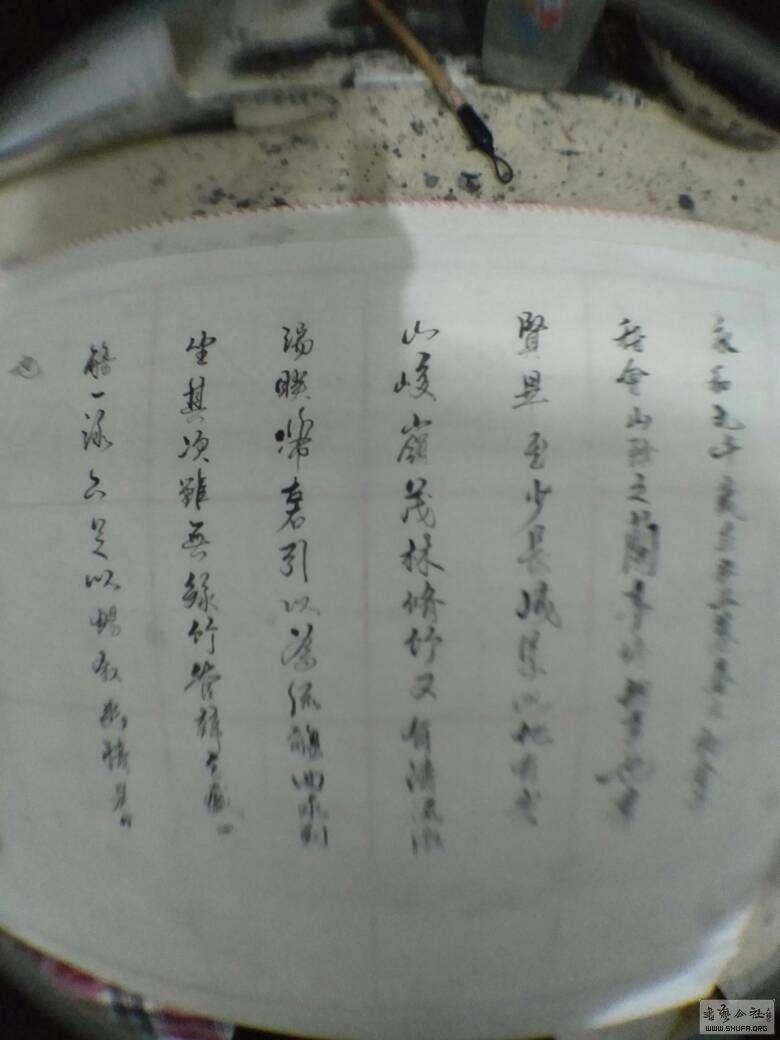 永和九年歲在癸丑暮春之初會
會山陰之蘭亭脩禊事也羣
賢畢至少長咸集此地有崇
山峻嶺茂林脩竹又有清流激
湍暎帶左右引以為流觴曲水列
坐其次雖無絲竹管絃之盛一
觴一詠亦足以暢敘幽情是日
也
书艺公社
WWW.SHUFA.ORG